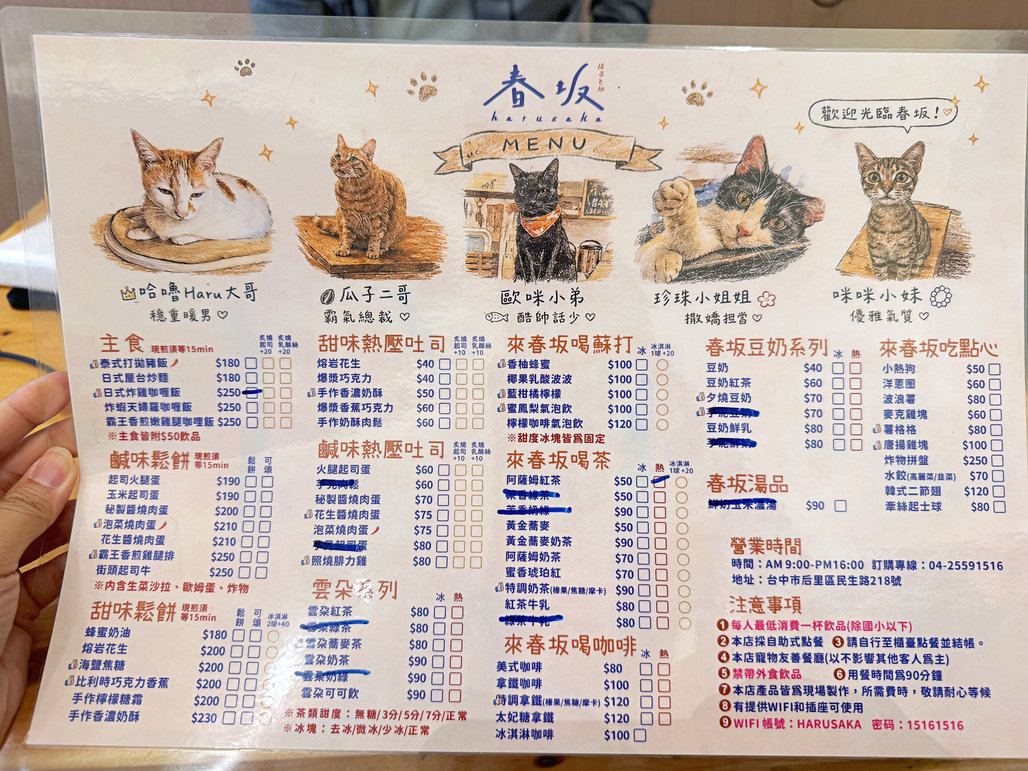 春坂
はるさか
harusaka
MENU
歡迎光臨春坂!
哈嚕Haru大哥
穩重暖男
瓜子二哥
霸氣總裁
歐咪小弟
酷帥話少
珍珠小姐姐
撒嬌担當
咪咪小妹
優雅氣質
主食 現煎須等15min 炙燒起司+20 炙燒乳酪絲+20
泰式打拋豬飯 $180
日式屋台炒麵 $180
日式炸雞咖喱飯 $250
炸蝦天婦羅咖喱飯 $250
霸王香煎嫩雞腿咖哩飯 $250
※主食皆附$50飲品
鹹味鬆餅 現煎須等15min 鬆餅 可頌
起司火腿蛋 $190
玉米起司蛋 $190
秘製醬燒肉蛋 $200
泡菜燒肉蛋 $210
花生醬燒肉蛋 $210
霸王香煎雞腿排 $250
街頭起司牛 $250
※內含生菜沙拉、歐姆蛋、炸物
甜味鬆餅 現煎須等15min 鬆餅 可頌 冰淇淋2球+40
蜂蜜奶油 $180
熔岩花生 $200
海鹽焦糖 $200
比利時巧克力香蕉 $200
手作檸檬糖霜 $200
手作香濃奶酥 $230
甜味熱壓吐司 炙燒起司+10 炙燒乳酪絲+10
熔岩花生 $40
爆漿巧克力 $40
手作香濃奶酥 $50
爆漿香蕉巧克力 $60
手作奶酥肉鬆 $60
鹹味熱壓吐司 炙燒起司+10 炙燒乳酪絲+10
火腿起司蛋 $60
$60
秘製醬燒肉蛋 $70
花生醬燒肉蛋 $75
泡菜燒肉蛋 $75
$80
照燒腓力雞 $80
雲朵系列 冰 熱
雲朵紅茶 $80
$80
雲朵蕎麥茶 $80
雲朵奶茶 $90
$90
雲朵可可飲 $90
※茶類甜度:無糖/3分/5分/7分/正常
※冰塊:去冰/微冰/少冰/正常
來春坂喝蘇打 冰 冰淇淋1球+20
香柚蜂蜜 $100
椰果乳酸波波 $100
藍柑橘檸檬 $100
蜜鳳梨氣泡飲 $100
檸檬咖啡氣泡飲 $120
※甜度冰塊皆爲固定
來春坂喝茶 冰 熱 冰淇淋1球+20
阿薩姆紅茶 $50
$50
$90
黃金蕎麥 $50
黃金蕎麥奶茶 $90
阿薩姆奶茶 $70
蜜香琥珀紅 $70
特調奶茶(榛果/焦糖/摩卡) $90
紅茶牛乳 $80
$80
來春坂喝咖啡 冰 熱
美式咖啡 $80
拿鐵咖啡 $100
特調拿鐵(榛果/焦糖/摩卡) $120
太妃糖拿鐵 $120
冰淇淋咖啡 $100
春坂豆奶系列 冰 熱
豆奶 $40
豆奶紅茶 $60
夕燒豆奶 $70
$70
豆奶鮮乳 $80
$80
春坂湯品
$90
來春坂吃點心
小熱狗 $50
洋蔥圈 $60
波浪薯 $80
麥克雞塊 $60
薯格格 $80
唐揚雞塊 $100
炸物拼盤 $250
水餃(高麗菜/韭菜) $70
韓式二節翅 $120
牽絲起士球 $80
營業時間
時間:AM 9:00-PM16:00 訂購專線:04-25591516
地址:台中市后里區民生路218號
注意事項
1 每人最低消費一杯飲品(除國小以下)
2 本店採自助式點餐 3 請自行至櫃臺點餐並結帳。
4 本店寵物友善餐廳(以不影響其他客人爲主)
5 禁帶外食飲品 6 用餐時間爲90分鐘
7 本店產品皆爲現場製作,所需費時,敬請耐心等候
8 有提供WIFI和插座可使用
9 WIFI 帳號:HARUSAKA 密码:15161516